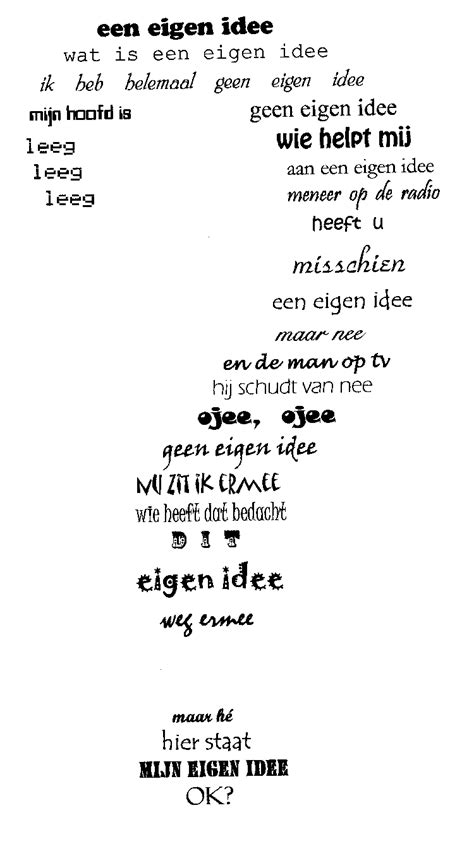 een eigen idee
wat is een eigen idee
ik heb helemaal geen eigen idee
mijn hoofd is
leeg
leeg
leeg
geen eigen idee
wie helpt mij
aan een eigen idee
meneer op de radio
heeft u
misschien
een eigen idee
maar nee
en de man op tv
hij schudt van nee
ojee, ojee
geen eigen idee
NU ZIT iK ERMEE
wie heeft dat bedacht
D I T
eigen idee
weg ermee
maar hé
hier staat
MIJN EIGEN IDEE
OK?